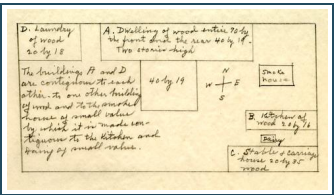 D. Laundry
of wood
20 by 18
A. Dwelling of wood entire 70 by
the front and the rear 40 by 19.
Two stories high
The buildings A and D
are contiguous to each
other - to one other building
of wood and to the smoke
house of small value
by which it is made con-
tiguous to the Kitchen and
Dairy of small value.
40 by 19
N
W E
S
Smoke
house
B. Kitchen of
wood 20 by 16
Dairy
C. Stable & carriage
house 20 by 85
wood